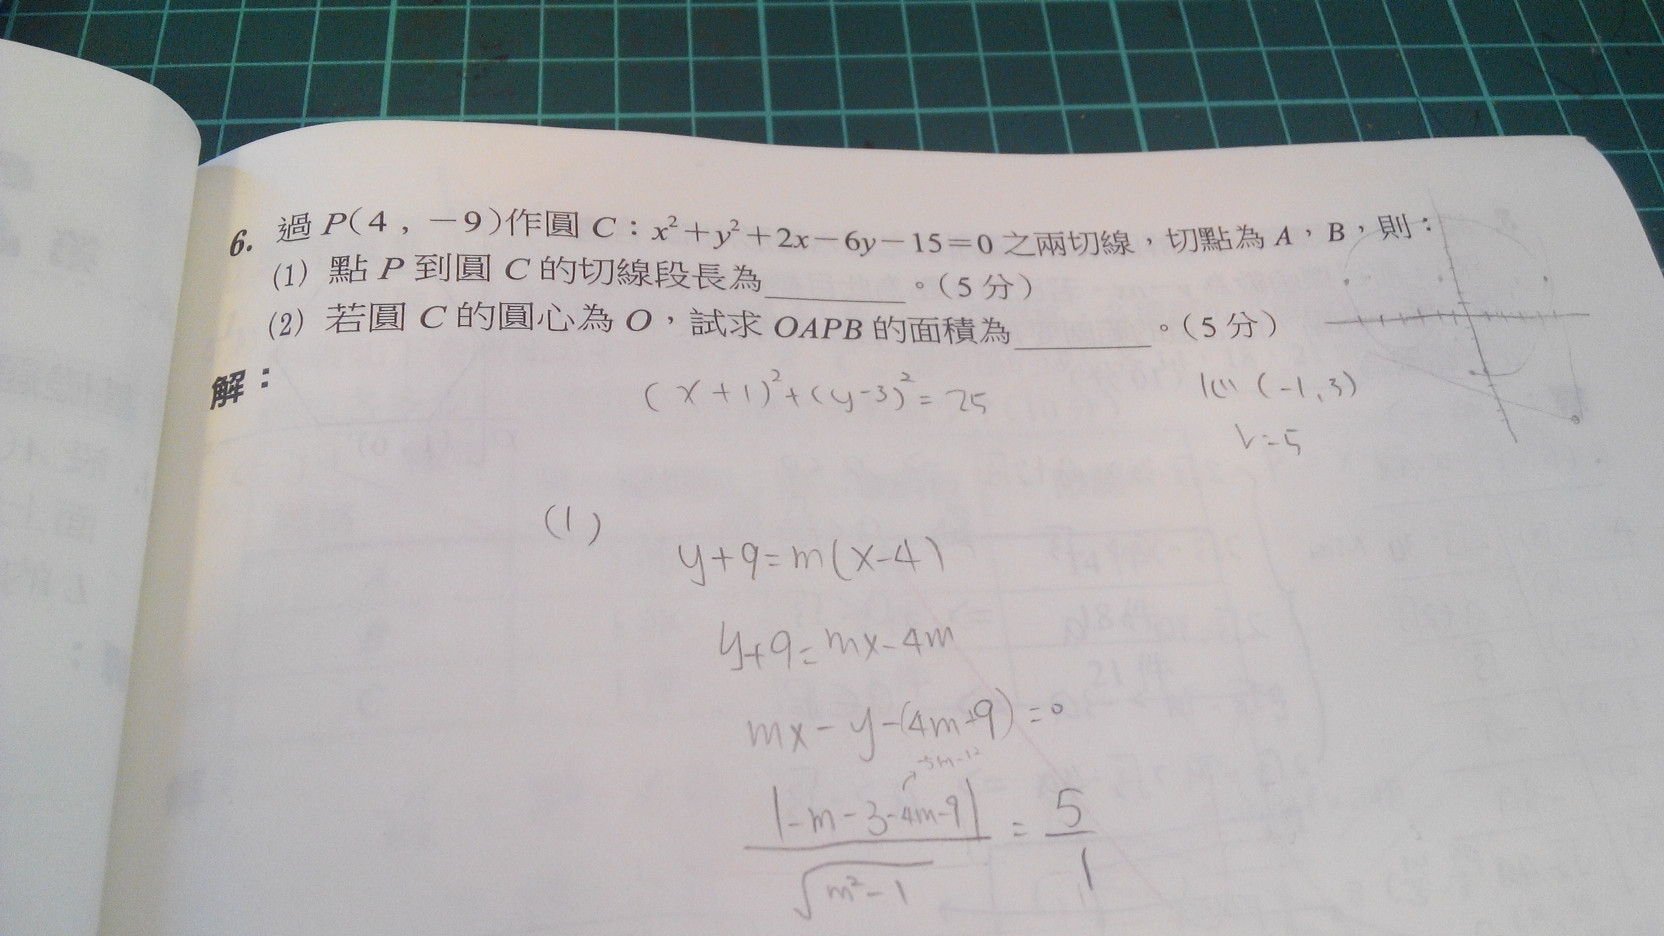 6. 過 P(4，－9)作圓 C：x²＋y²＋2x－6y－15＝0 之兩切線，切點為 A，B，則：
(1) 點 P 到圓 C 的切線段長為________。(5 分)
(2) 若圓 C 的圓心為 O，試求 OAPB 的面積為________。(5 分)
解：
(x+1)²+(y-3)²=25
(-1,3)
r=5
(1)
y+9=m(x-4)
y+9=mx-4m
mx-y-(4m+9)=0
-5m-12
|-m-3-4m-9| / √(m²-1) = 5/1